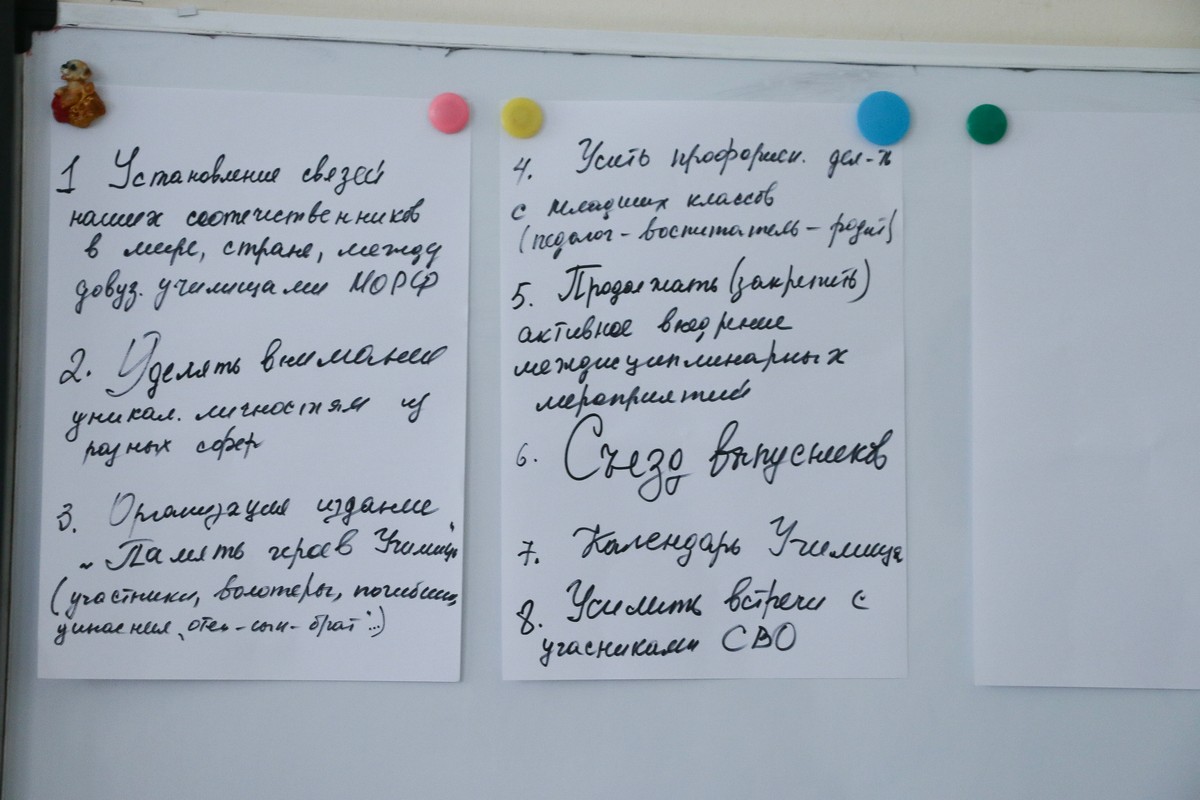 1 Установление связей
наших соотечественников
в мире, стране, между
довуз. училищами МОРФ
2. Уделять внимание
уникал. личностям из
разных сфер
3. Организация издание
"Память героев Училища"
(участники, волотеры, погибшие,
отец-сын-брат...)
4. Усить профориен. деял-ть
с младших классов
(педагог - воспитатель - родит)
5. Продолжать (закрепить)
активное внедрение
междисциплинарных
мероприятий
6. Съезд выпусников
7. Календарь Училища
8. Усилить встречи с
учасниками СВО